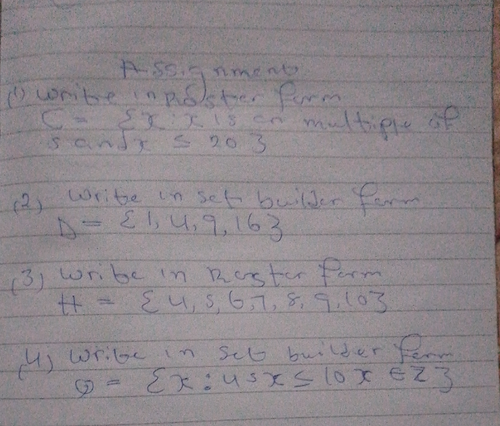 Assignment
(1) Write in Roster form
C = {x : x is an multiple of
5 and x ≤ 20}
(2) Write in set builder form
D = {1, 4, 9, 16}
(3) Write in Roster form
H = {4, 5, 6, 7, 8, 9, 10}
(4) Write in set builder form
Q = {x : 4 ≤ x ≤ 10 x ∈ Z}